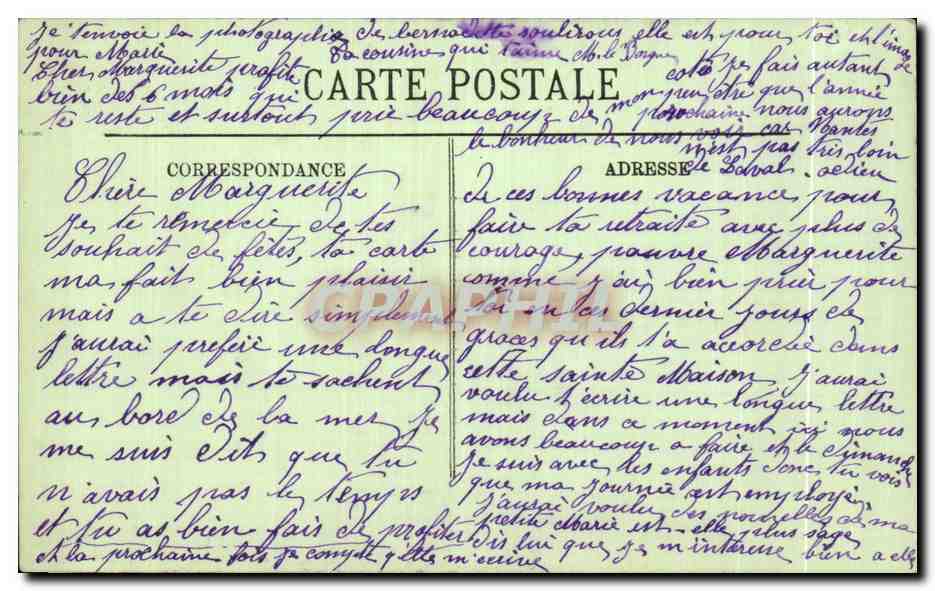 Je t'envoie la photographie de bernadette soubirous elle est pour toi et l'image
pour Marie
Ta cousine qui t'aime M. le Borgne
CARTE POSTALE
CORRESPONDANCE
Chère Marguerite
Je te remercie de tes
souhait de fêtes, ta carte
ma fait bien plaisir
mais a te dire simplement
j'aurai preferé une longue
lettre mais te sachent
au bord de la mer je
me suis dit que tu
n'avais pas le temps
et tu as bien fais de profiter
et la prochaine fois je compte q'tte m'ecrire
ADRESSE
de ces bonnes vacance pour
faire ta retraite avec plus de
courage, pauvre Marguerite
comme j'ai bien prier pour
toi en ces dernier jours de
graces qu'ils t'a accordée dans
cette sainte Maison, j'aurai
voulu t'écrire une longue lettre
mais dans ce moment ici nous
avons beaucoup a faire et le dimanche
je suis avec les enfants donc tu vois
que ma journée est employé
j'aurai voulu des nouvelles de ma
petite Marie est-elle plus sage
dis lui que je m'interesse bien a elle
Cher Marguerite profite
bien des 6 mois qui
te reste et surtout prie beaucoup de mon
coté je fais autant
peu etre que l'année
prochaine nous aurons
le bonheur de nous voir car Nantes
n'est pas tris loin
de Laval. adieu
CPAPHIL